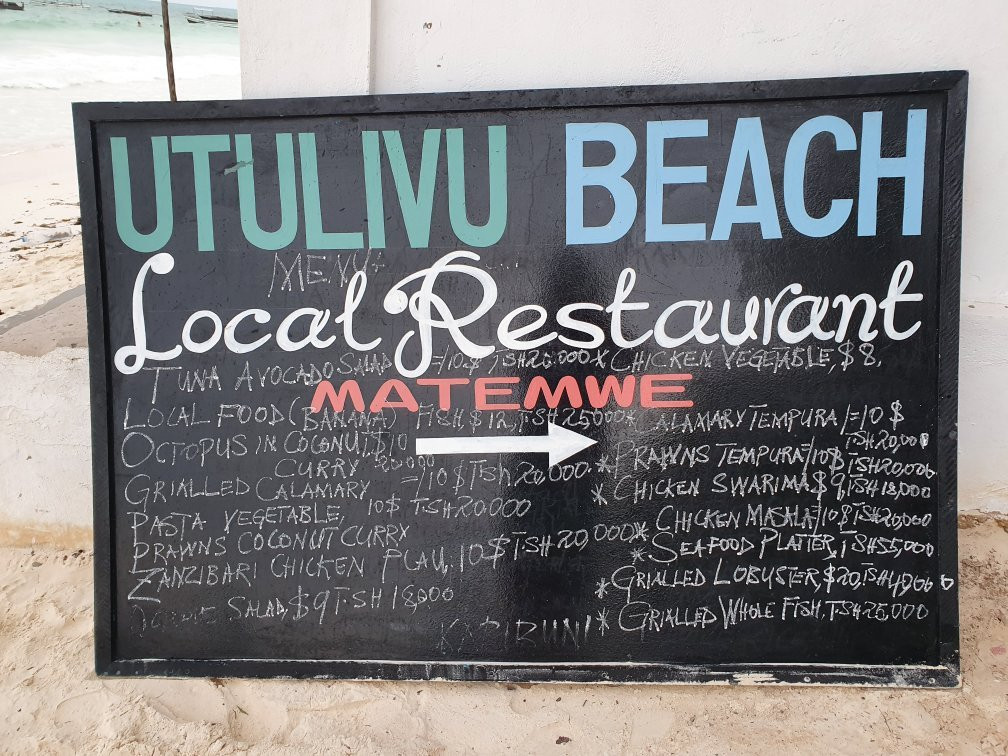 UTULIVU BEACH
MENU
Local Restaurant
MATEMWE
TUNA AVOCADO SALAD =10$ TSH20.000
LOCAL FOOD (BANANA) FISH,$12,TSH25,000
OCTOPUS IN COCONUT
CURRY =/10$TSH20,000.
GRIALLED CALAMARY
PASTA VEGETABLE, 10$ TSH20000
PRAWNS COCONUT CURRY
ZANZIBARI CHICKEN PLAU,10$TSH20,000
SALAD,$9TSH18000
KARIBUNI
* CHICKEN VEGETABLE,$8,
* CALAMARY TEMPURA /=10$
TSH20,000
* PRAWNS TEMPURA=/10$TSH20,000
* CHICKEN SWARIMA$9,TSH18,000
* CHICKEN MASALA/10$TSH20,000
* SEAFOOD PLATTER,TSH55,000
* GRIALLED LOBUSTER,$20,TSH49,000
* GRIALLED WHOLE FISH,TSH25,000